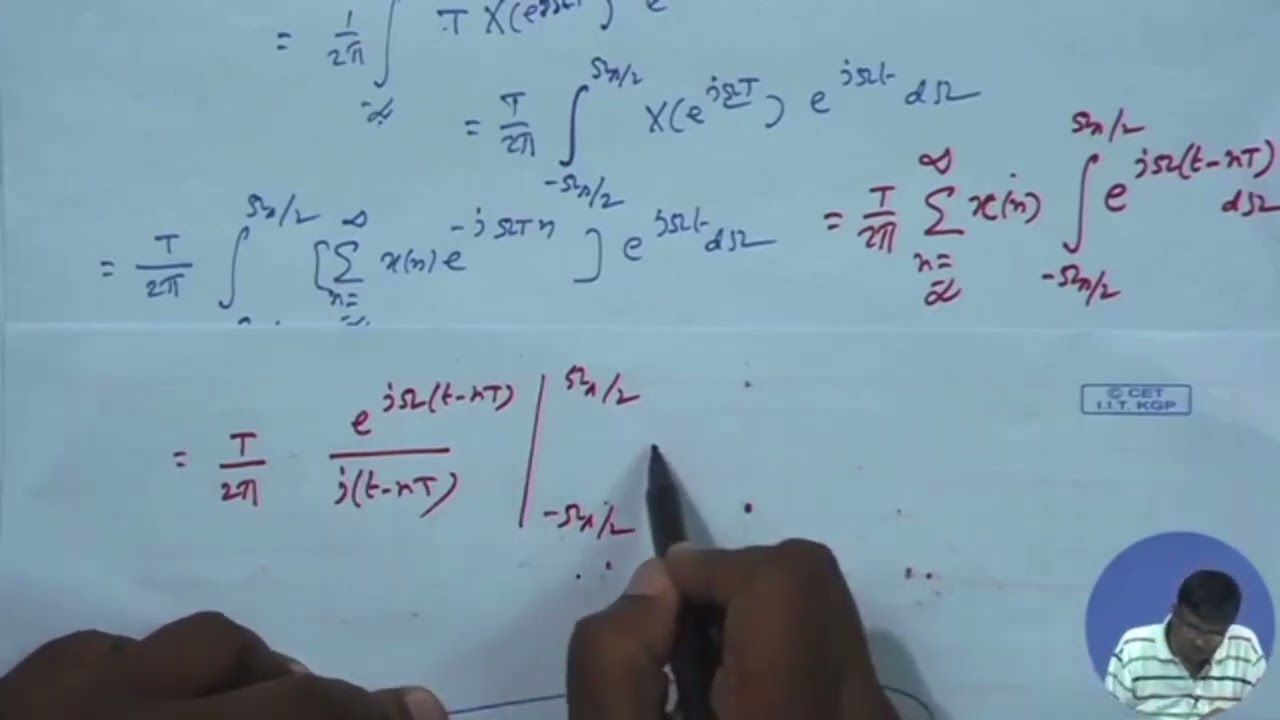 = 1/2π ∫ T X(e^{jΩT}) e
-∞
= T/2π ∫_{-Ωs/2}^{Ωs/2} X(e^{jΩT}) e^{jΩt} dΩ
= T/2π ∫^{Ωs/2} [∑_{n=-∞}^{∞} x(n) e^{-jΩTn}] e^{jΩt} dΩ
= T/2π ∑_{n=-∞}^{∞} x(n) ∫_{-Ωs/2}^{Ωs/2} e^{jΩ(t-nT)} dΩ
= T/2π e^{jΩ(t-nT)} / j(t-nT) |_{-Ωs/2}^{Ωs/2}
© CET
I.I.T. KGP